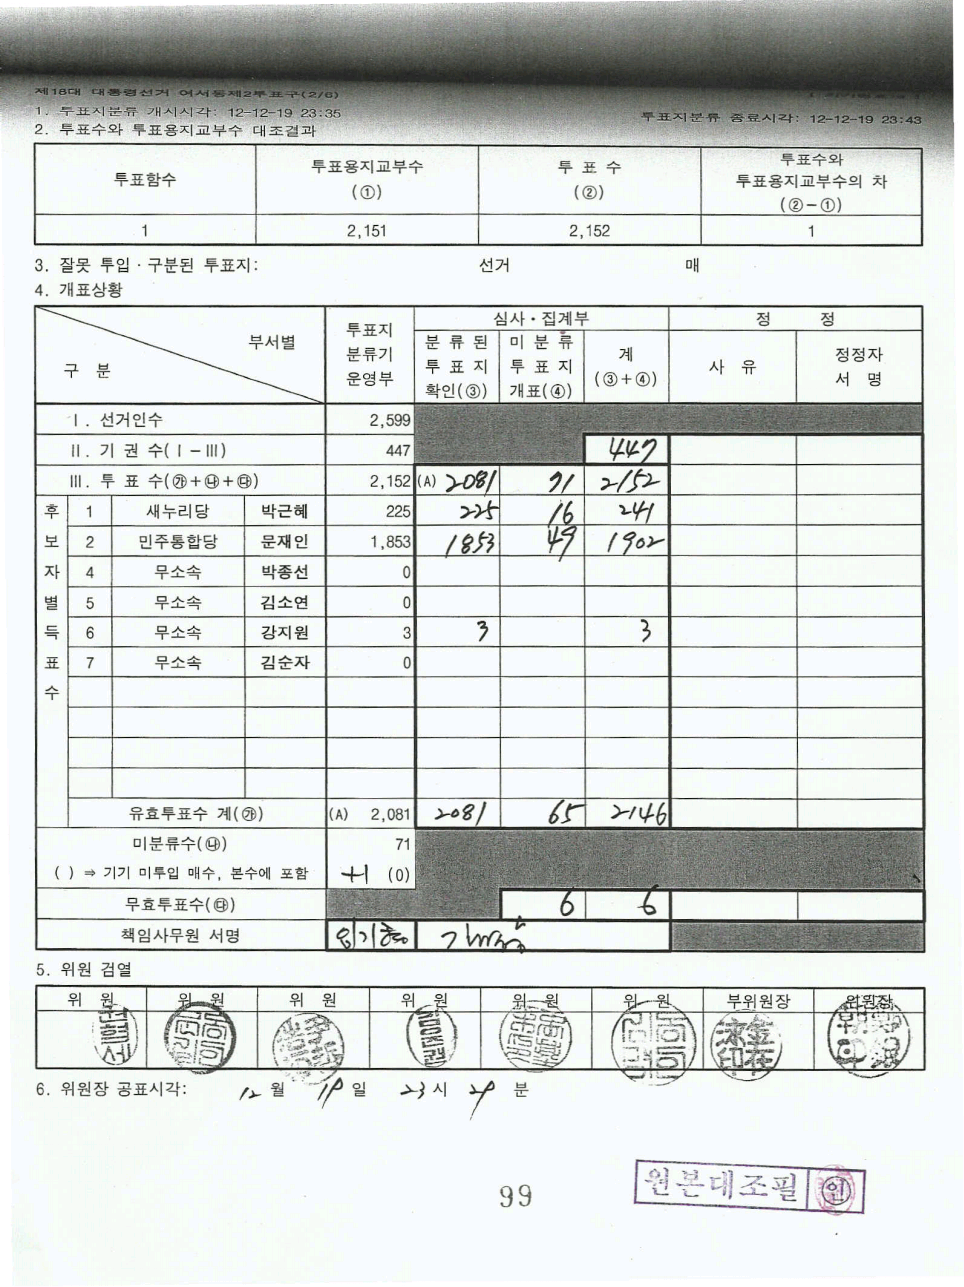 제18대 대통령선거 여서동제2투표구(2/6)
1. 투표지분류 개시시각: 12-12-19 23:35
투표지분류 종료시각: 12-12-19 23:43
2. 투표수와 투표용지교부수 대조결과
투표함수 투표용지교부수 (①) 투 표 수 (②) 투표수와 투표용지교부수의 차 (②-①)
1 2,151 2,152 1
3. 잘못 투입·구분된 투표지: 선거 매
4. 개표상황
구 분 부서별 투표지 분류기 운영부 심사·집계부 정 정
분 류 된 투 표 지 확인(③) 미 분 류 투 표 지 개표(④) 계 (③+④) 사 유 정정자 서 명
Ⅰ. 선거인수 2,599
Ⅱ. 기 권 수(Ⅰ-Ⅲ) 447 447
Ⅲ. 투 표 수(㉮+㉯+㉰) 2,152 (A) 2081 71 2152
후보자별득표수
1 새누리당 박근혜 225 225 16 241
2 민주통합당 문재인 1,853 1853 49 1902
4 무소속 박종선 0
5 무소속 김소연 0
6 무소속 강지원 3 3 3
7 무소속 김순자 0
유효투표수 계(㉮) (A) 2,081 2081 65 2146
미분류수(㉯) 71
( ) ⇒ 기기 미투입 매수, 본수에 포함 +1 (0)
무효투표수(㉰) 6 6
책임사무원 서명
5. 위원 검열
위 원 위 원 위 원 위 원 위 원 위 원 부위원장 위원장
6. 위원장 공표시각: 12 월 19 일 23 시 29 분
99
원본대조필 인